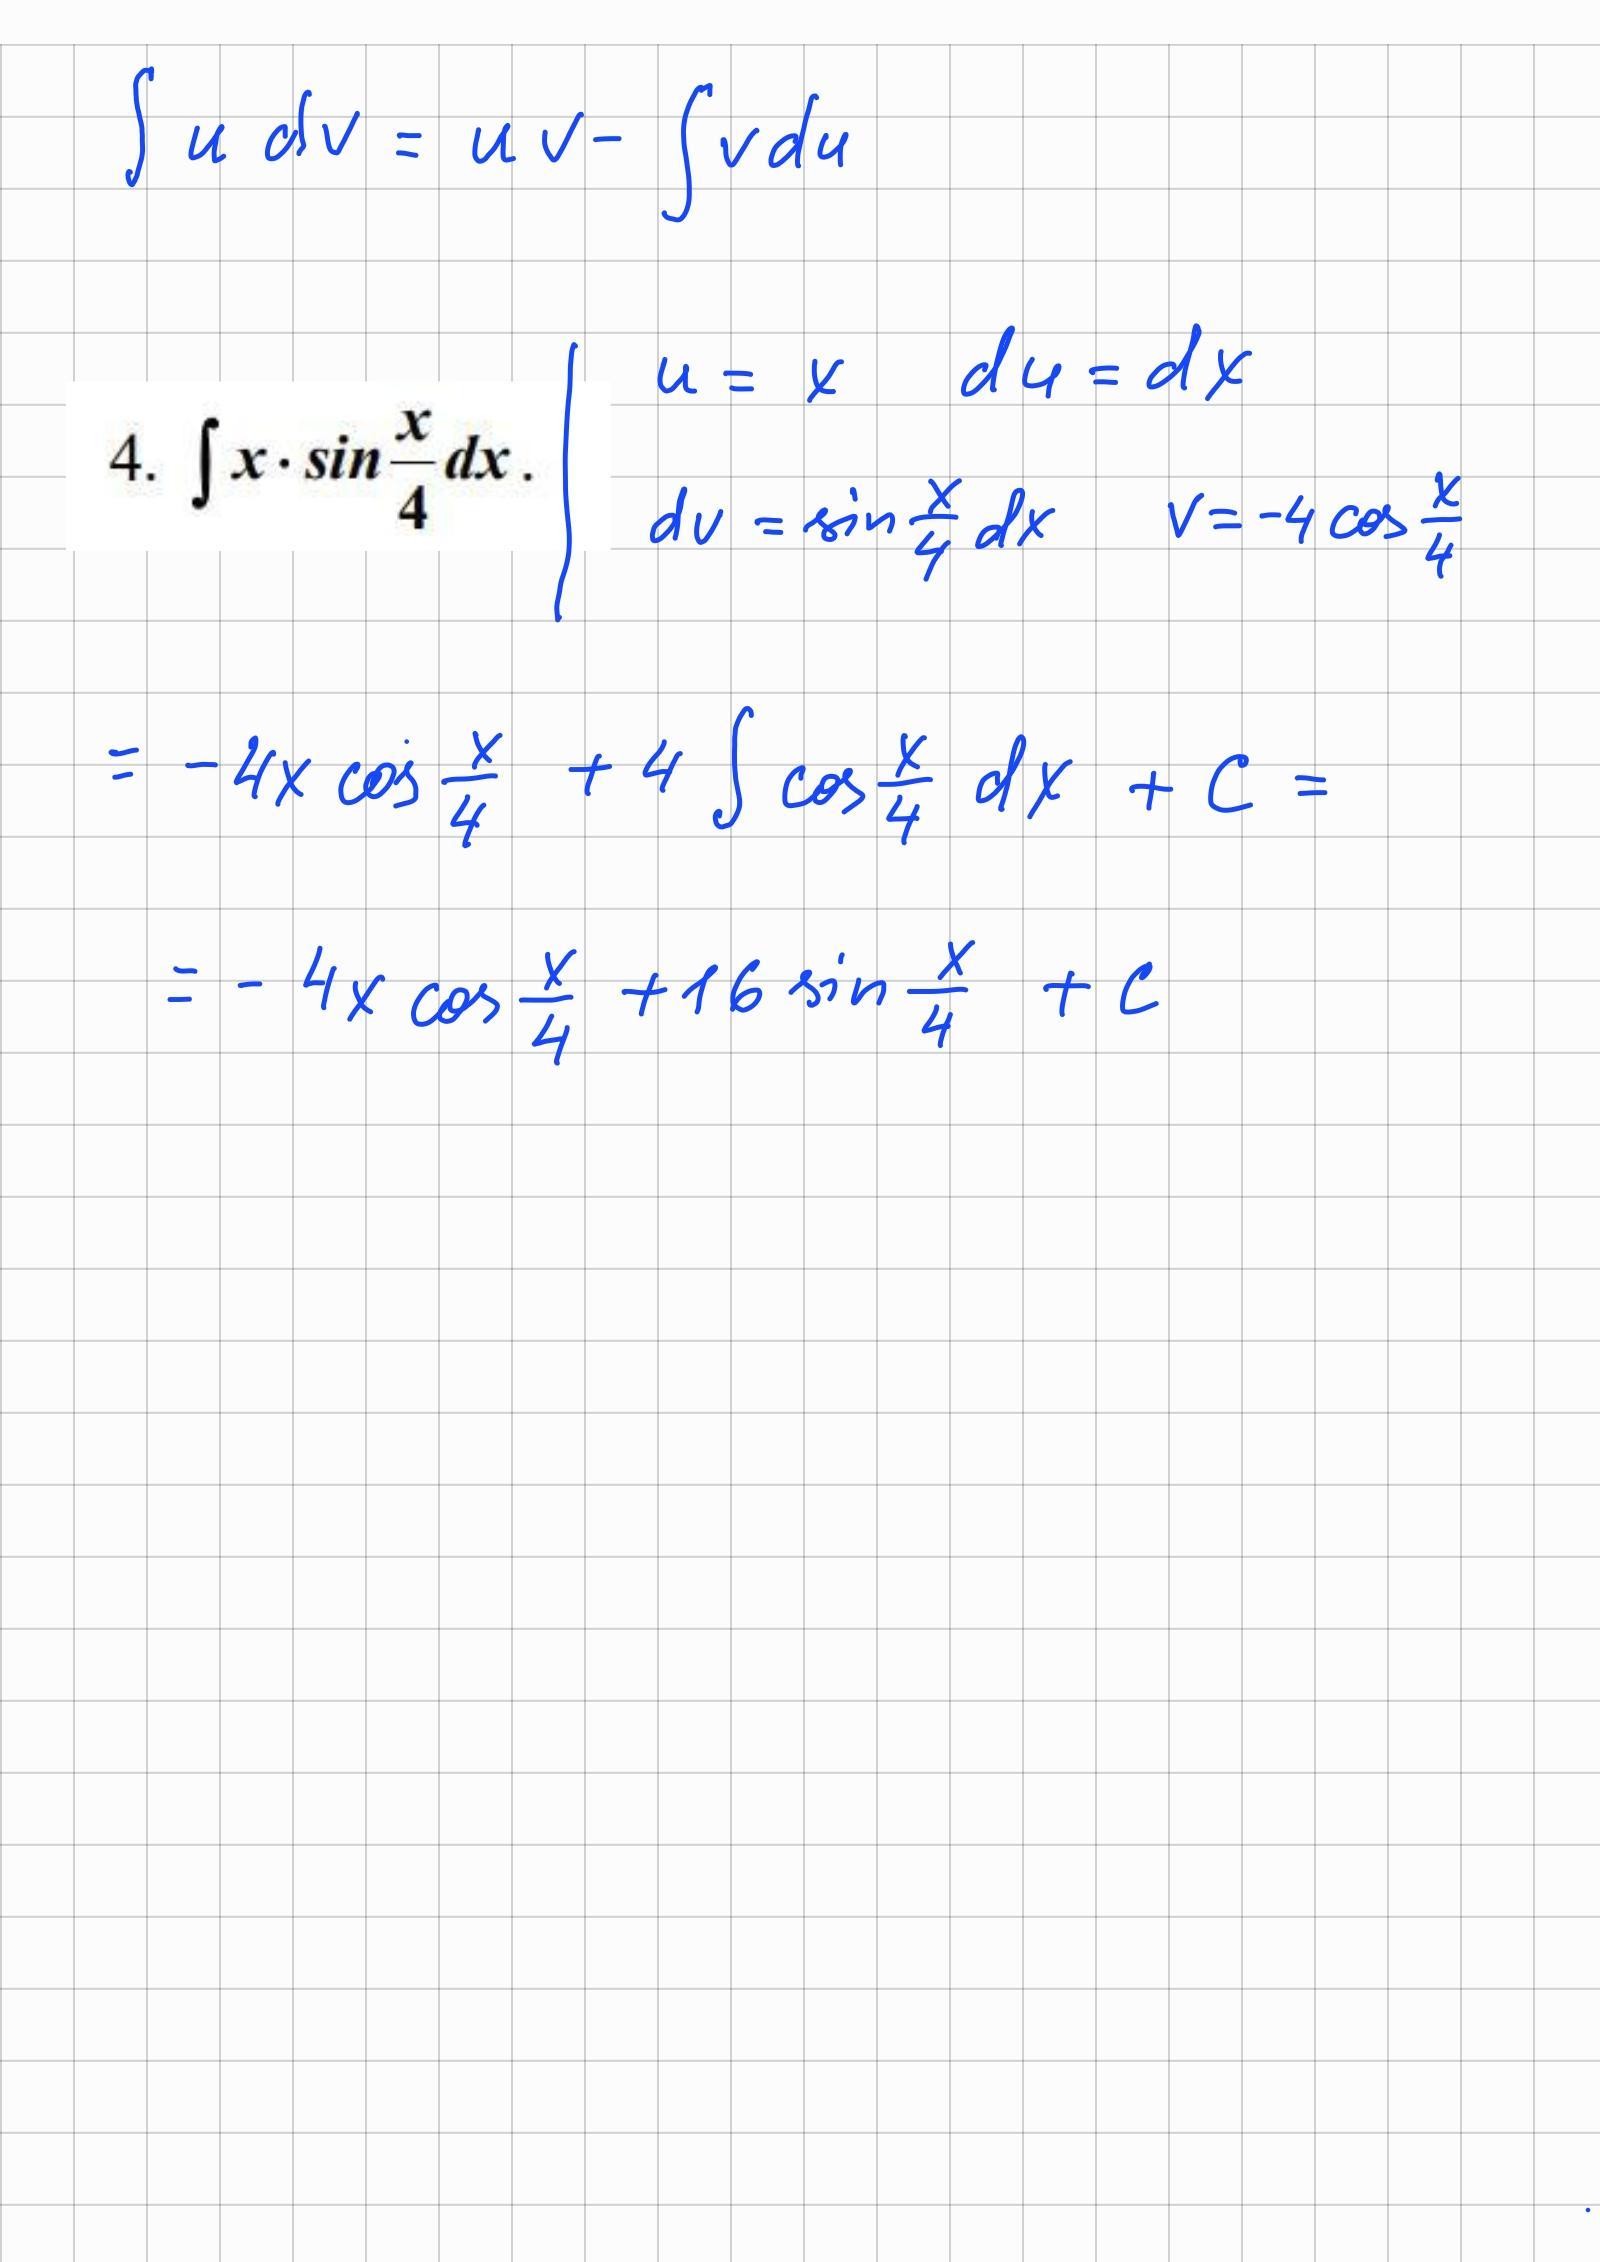 ∫ u dv = uv - ∫ v du
4. ∫ x · sin x/4 dx. | u = x du = dx
dv = sin x/4 dx v = -4 cos x/4
= -4x cos x/4 + 4 ∫ cos x/4 dx + C =
= -4x cos x/4 + 16 sin x/4 + C